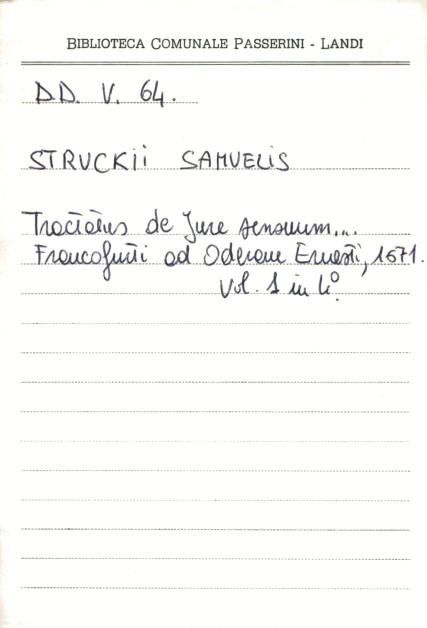 BIBLIOTECA COMUNALE PASSERINI - LANDI
DD. V. 64.
STRUCKII SAMUELIS
Tractatus de Jure sensuum...
Francofurti ad Oderam Ernesti, 1671.
Vol. 1 in 4°.